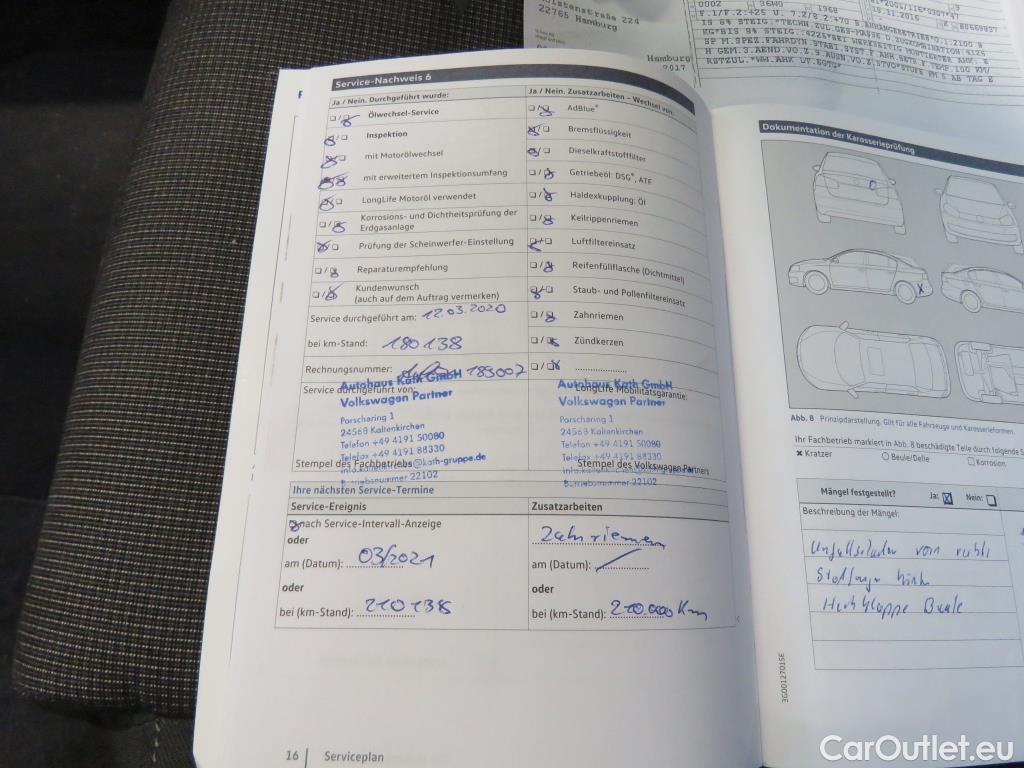 22765 Hamburg
Hamburg
2017
Service-Nachweis 6
Ja / Nein. Durchgeführt wurde:
Ölwechsel-Service
Inspektion
mit Motorölwechsel
mit erweitertem Inspektionsumfang
LongLife Motoröl verwendet
Korrosions- und Dichtheitsprüfung der
Erdgasanlage
Prüfung der Scheinwerfer-Einstellung
Reparaturempfehlung
Kundenwunsch
(auch auf dem Auftrag vermerken)
Service durchgeführt am: 12.03.2020
bei km-Stand: 180138
Rechnungsnummer: 183007
Service durchgeführt von:
Autohaus Kath GmbH
Volkswagen Partner
Porschering 1
24568 Kaltenkirchen
Telefon +49 4191 50080
Telefax +49 4191 88330
info.kaltenkirchen@kath-gruppe.de
Betriebsnummer 22102
Stempel des Fachbetriebs
Ja / Nein. Zusatzarbeiten – Wechsel von:
AdBlue®
Bremsflüssigkeit
Dieselkraftstofffilter
Getriebeöl: DSG®, ATF
Haldexkupplung: Öl
Keilrippenriemen
Luftfiltereinsatz
Reifenfüllflasche (Dichtmittel)
Staub- und Pollenfiltereinsatz
Zahnriemen
Zündkerzen
LongLife Mobilitätsgarantie:
Autohaus Kath GmbH
Volkswagen Partner
Porschering 1
24568 Kaltenkirchen
Telefon +49 4191 50080
Telefax +49 4191 88330
Betriebsnummer 22102
Stempel des Volkswagen Partners
Ihre nächsten Service-Termine
Service-Ereignis
nach Service-Intervall-Anzeige
oder
am (Datum): 03/2021
oder
bei (km-Stand): 210138
Zusatzarbeiten
Zahnriemen
am (Datum):
oder
bei (km-Stand): 210.000 Km
16 | Serviceplan
Dokumentation der Karosserieprüfung
Abb. 8 Prinzipdarstellung. Gilt für alle Fahrzeuge und Karosserieformen.
Ihr Fachbetrieb markiert in Abb. 8 beschädigte Teile durch folgende
Kratzer
Beule/Delle
Korrosion
Mängel festgestellt? Ja: Nein:
Beschreibung der Mängel:
Unfallschaden vorn rechts
Stoßfänger hinten
Heckklappe Beule
3G0012701SE
CarOutlet.eu